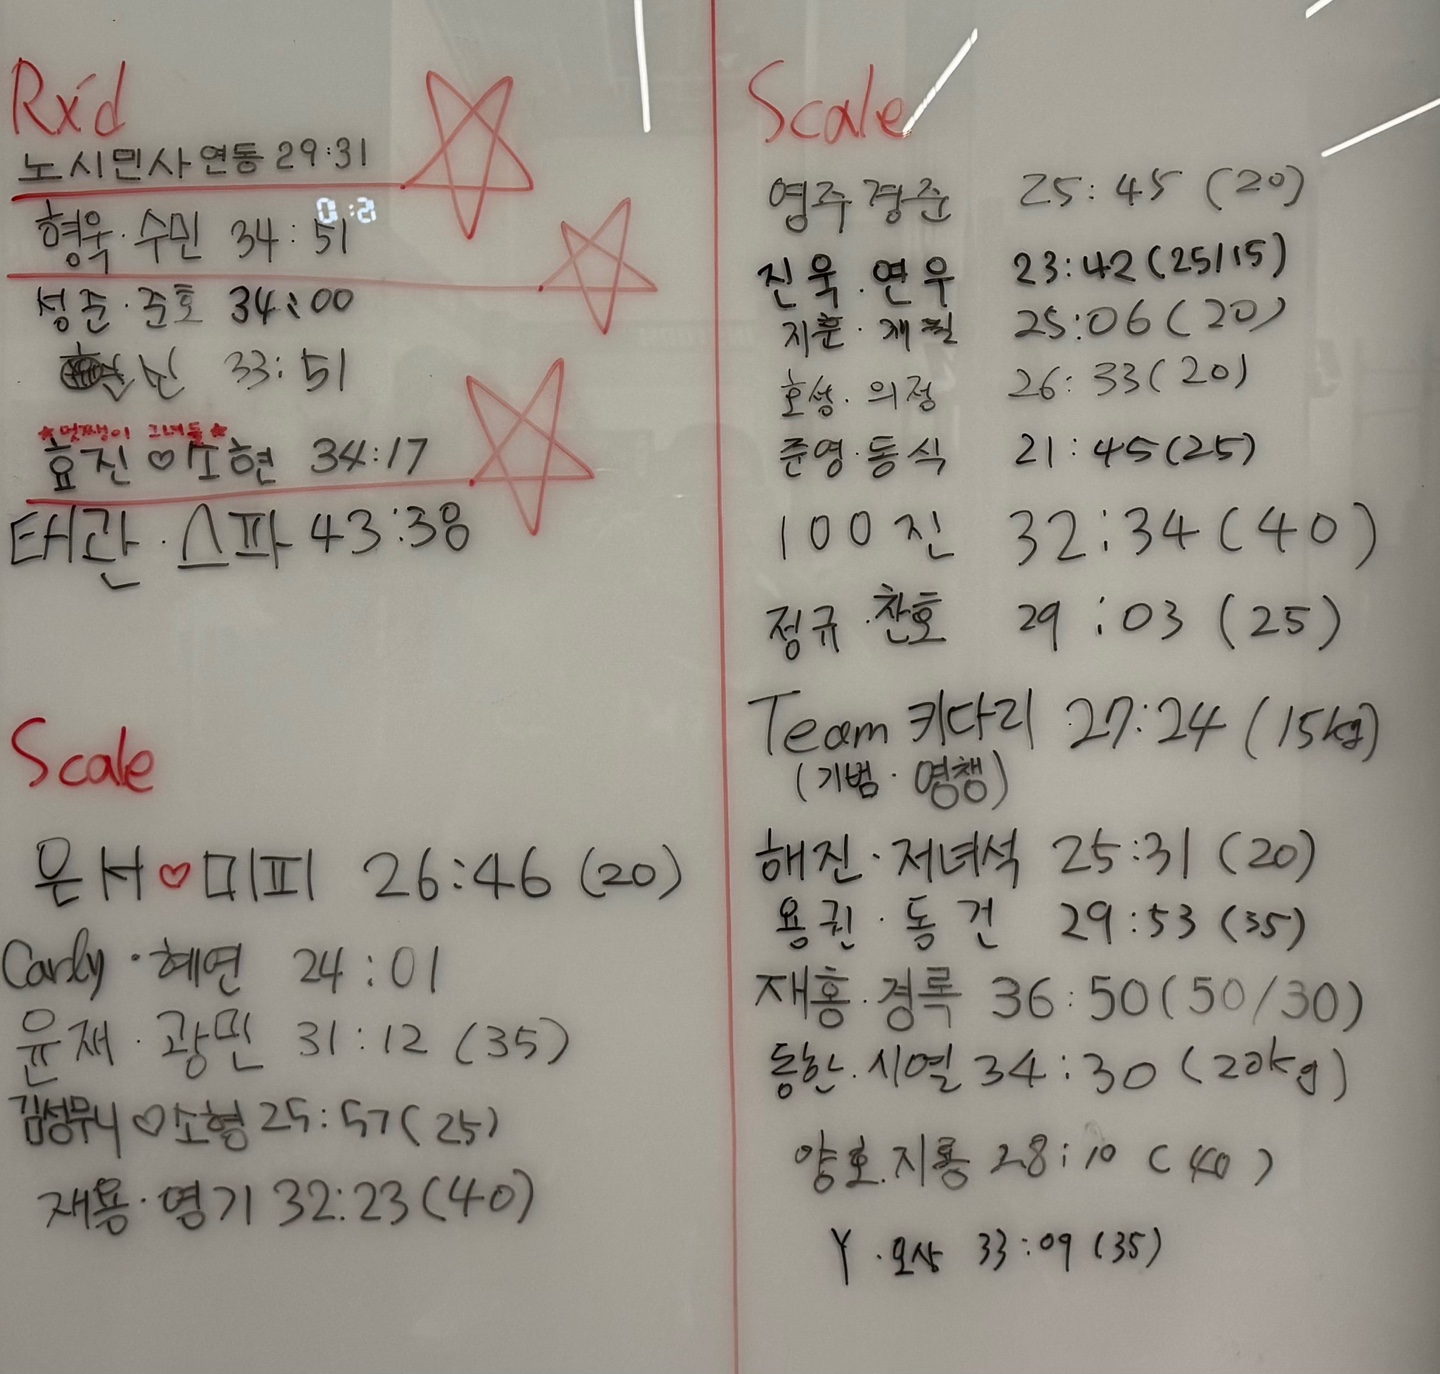 Rx'd
노시민사연동 29:31
형욱·수민 34:51
성준·준호 34:00
33:51
★멋쟁이 그녀들★
효진♡소현 34:17
태관·스파 43:38
Scale
은서♡미피 26:46 (20)
Carly·혜연 24:01
윤재·광민 31:12 (35)
김성무니♡소형 25:57(25)
재용·영기 32:23(40)
Scale
영주 경준 25:45 (20)
진욱·연우 23:42(25/15)
지훈·재필 25:06(20)
호성·의정 26:33(20)
준영·동식 21:45(25)
100진 32:34(40)
정규·찬호 29:03 (25)
Team 키다리 27:24 (15kg)
(기범·영챙)
해진·저녀석 25:31 (20)
용권·동건 29:53 (35)
재홍·경록 36:50(50/30)
동한·시열 34:30 (20kg)
양호·지룡 28:10 (40)
Y·오상 33:09 (35)